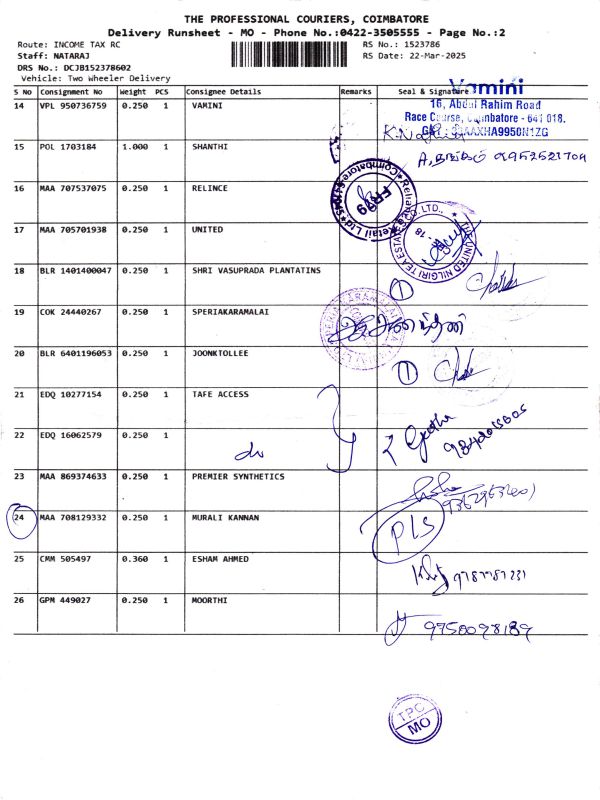 THE PROFESSIONAL COURIERS, COIMBATORE
Delivery Runsheet - MO - Phone No.:0422-3505555 - Page No.:2
Route: INCOME TAX RC RS No.: 1523786
Staff: NATARAJ RS Date: 22-Mar-2025
DRS No.: DCJB152378602
Vehicle: Two Wheeler Delivery
S No Consignment No Weight PCS Consignee Details Remarks Seal & Signature
Vamini
14 VPL 950736759 0.250 1 VAMINI
16, Abdul Rahim Road
Race Course, Coimbatore - 641 018.
15 POL 1703184 1.000 1 SHANTHI
16 MAA 707537075 0.250 1 RELINCE
17 MAA 705701938 0.250 1 UNITED
THE UNITED NILGIRI TEA ESTATES CO. LTD.,
18 BLR 1401400047 0.250 1 SHRI VASUPRADA PLANTATINS
1
19 COK 24440267 0.250 1 SPERIAKARAMALAI
20 BLR 6401196053 0.250 1 JOONKTOLLEE
1
21 EDQ 10277154 0.250 1 TAFE ACCESS
22 EDQ 16062579 0.250 1 do
23 MAA 869374633 0.250 1 PREMIER SYNTHETICS
24 MAA 708129332 0.250 1 MURALI KANNAN
PLS
25 CMM 505497 0.360 1 ESHAM AHMED
26 GPM 449027 0.250 1 MOORTHI
9750098189
TPC
MO